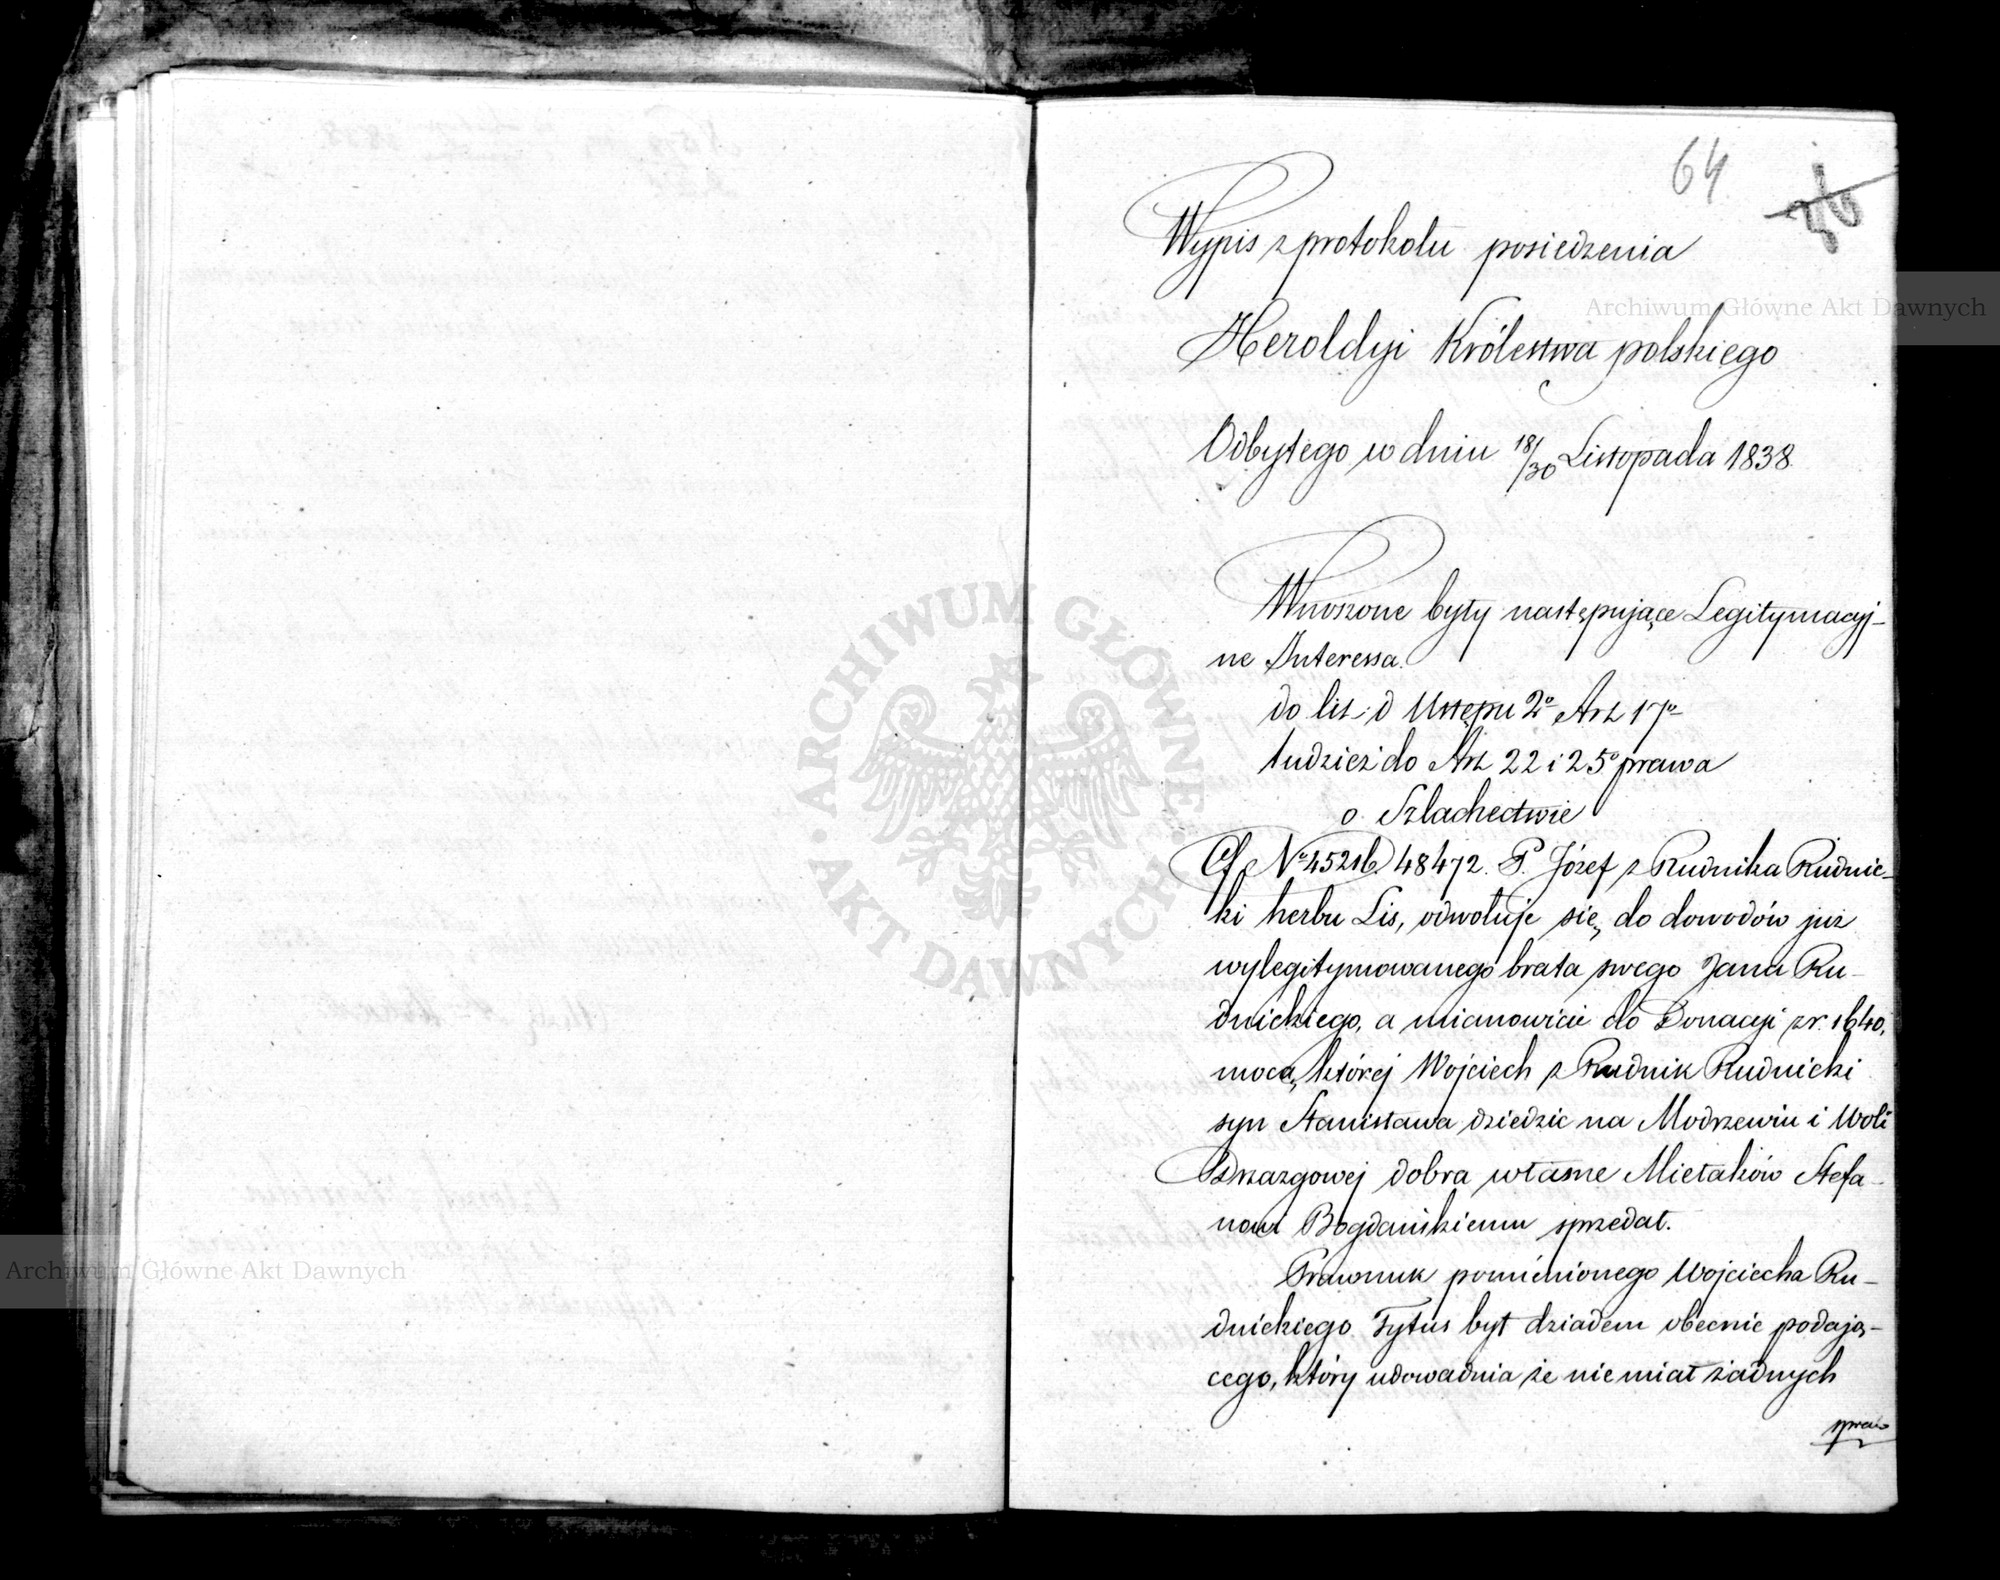 64
36
Wypis z protokołu posiedzenia
Heroldyi Królestwa polskiego
Odbytego w dniu 18/30 Listopada 1838
Wnoszone były następujące Legitymacyj-
ne Interessa.
do lit. d Ustępu 2º Art 17º
tudzież do Art 22 i 25º prawa
o Szlachectwie
Nº 45216. 48472. P. Józef z Rudnika Rudnic-
ki herbu Lis, odwołuje się, do dowodów już
wylegitymowanego brata swego Jana Ru-
dnickiego, a mianowicie do Donacyi z r. 1640,
mocą, której Wojciech z Rudnik Rudnicki
syn Stanisława dziedzic na Modrzewiu i Woli
Drzazgowej dobra własne Mietaków Stefa-
nowi Bogdańskiemu sprzedał.
Prawnuk pomienionego Wojciecha Ru-
dnickiego Tytus był dziadem obecnie podają-
cego, który udowadnia że nie miał żadnych
spraw
Archiwum Główne Akt Dawnych
Archiwum Główne Akt Dawnych
ARCHIWUM GŁÓWNE AKT DAWNYCH